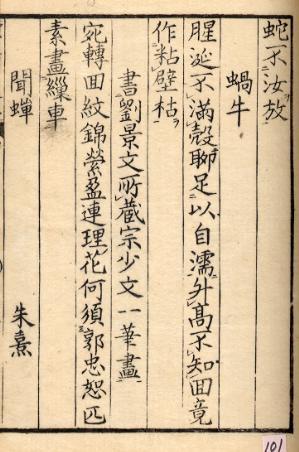 蛇不汝放
蝸牛
腥涎不滿殼聊足以自濡升髙不知囬竟
作粘壁枯
書劉景文所藏宗少文一華畫
宛轉囬紋錦縈盈連理花何須郭忠恕匹
素畫繅車
聞蟬 朱熹
101